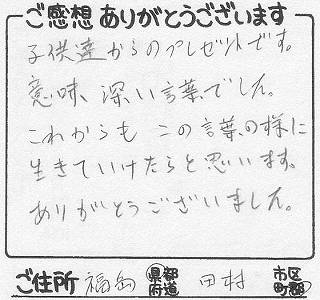 ご感想 ありがとうございます
子供達からのプレゼントです。
意味、深い言葉でした。
これからも この言葉の様に
生きていけたらと思います。
ありがとうございました。
ご住所 福島 県都府道 田村 市区町郡